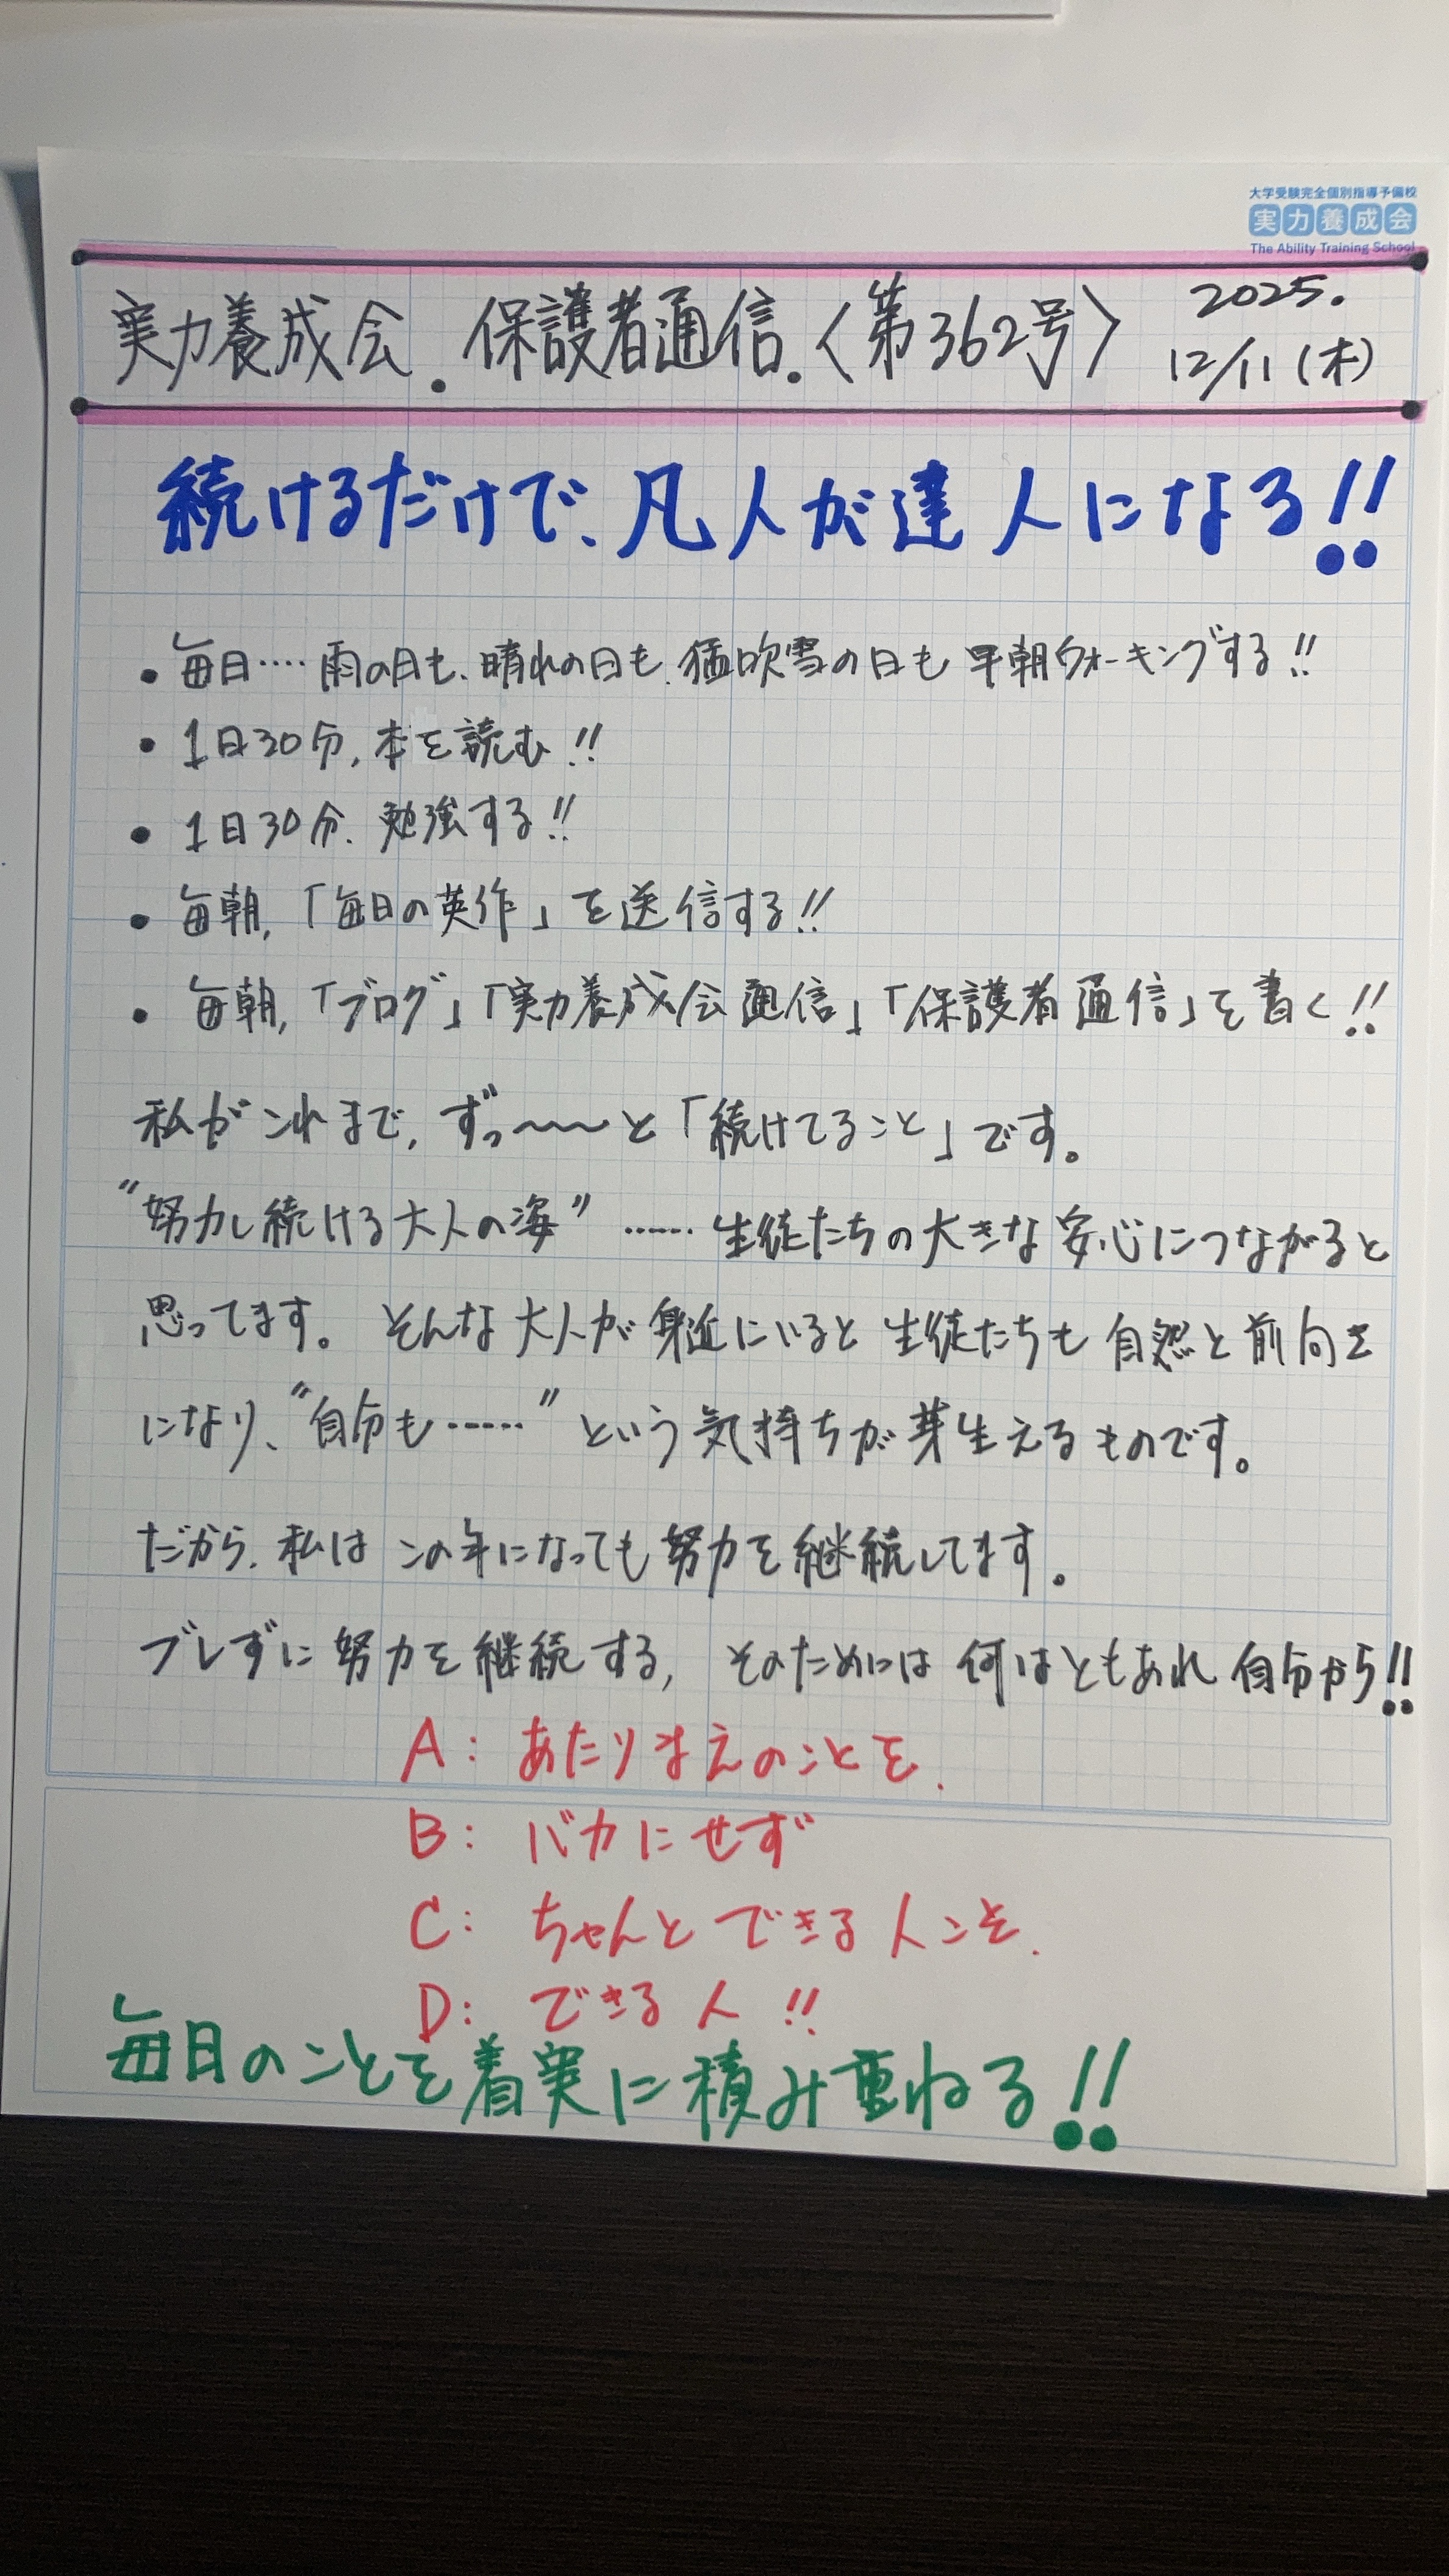 大学受験完全個別指導予備校
実力養成会
The Ability Training School
実力養成会.保護者通信.〈第362号〉
2025.
12/11(木)
続けるだけで、凡人が達人になる!!
・毎日‥‥雨の日も、晴れの日も、猛吹雪の日も早朝ウォーキングする!!
・1日30分,本を読む!!
・1日30分、勉強する!!
・毎朝,「毎日の英作」を送信する!!
・毎朝,「ブログ」「実力養成会通信」「保護者通信」を書く!!
私がこれまで,ずっ〜〜〜と「続けてること」です。
“努力し続ける大人の姿”……生徒たちの大きな安心につながると
思ってます。そんな大人が身近にいると生徒たちも自然と前向き
になり、“自分も……”という気持ちが芽生えるものです。
だから、私はこの年になっても努力を継続してます。
ブレずに努力を継続する,そのためには何はともあれ自分から!!
A:あたりまえのことを、
B:バカにせず
C:ちゃんとできる人こそ、
D:できる人!!
毎日のことを着実に積み重ねる!!